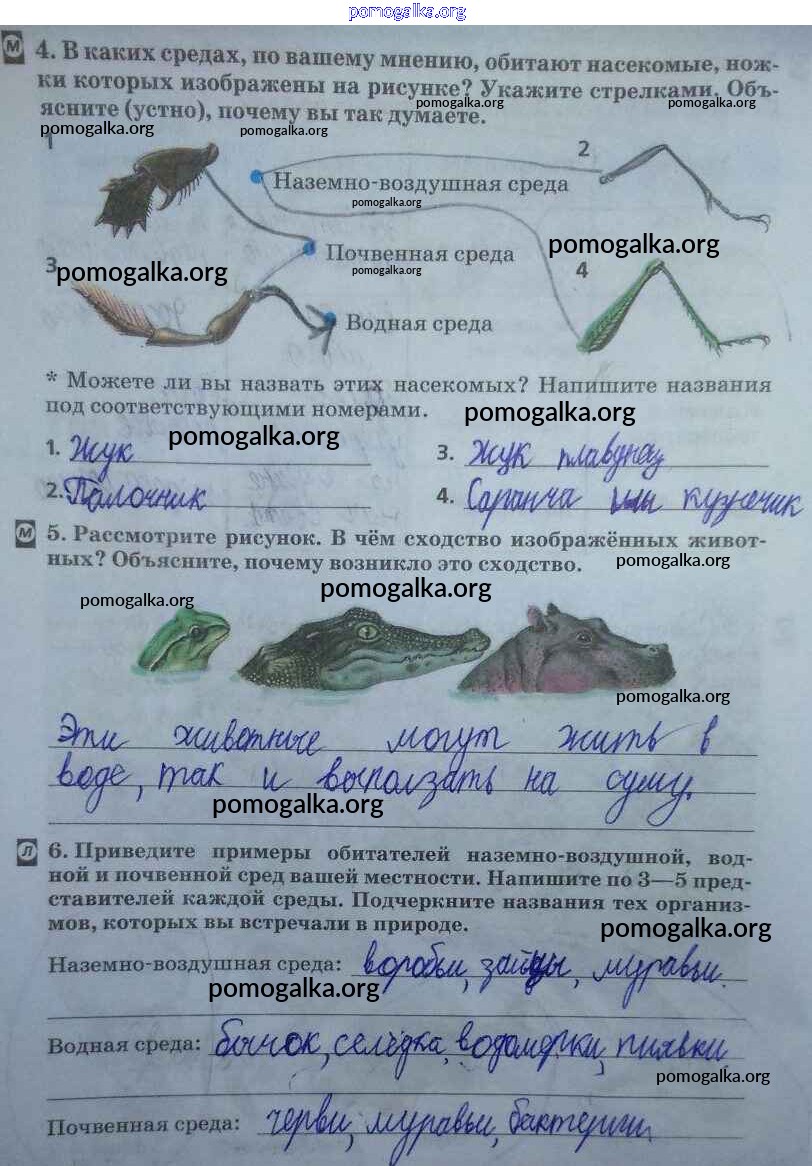 pomogalka.org
М 4. В каких средах, по вашему мнению, обитают насекомые, нож-
ки которых изображены на рисунке? Укажите стрелками. Объ-
pomogalka.org pomogalka.org
ясните (устно), почему вы так думаете.
pomogalka.org pomogalka.org
1 2
Наземно-воздушная среда
pomogalka.org
Почвенная среда pomogalka.org
3 pomogalka.org pomogalka.org 4
Водная среда
* Можете ли вы назвать этих насекомых? Напишите названия
под соответствующими номерами. pomogalka.org
1. Жук pomogalka.org 3. Жук плавунец
2. Палочник 4. Саранча или кузнечик
М 5. Рассмотрите рисунок. В чём сходство изображённых живот-
ных? Объясните, почему возникло это сходство. pomogalka.org
pomogalka.org pomogalka.org
pomogalka.org
Эти животные могут жить в
воде, так и выползать на сушу.
pomogalka.org
Л 6. Приведите примеры обитателей наземно-воздушной, вод-
ной и почвенной сред вашей местности. Напишите по 3—5 пред-
ставителей каждой среды. Подчеркните названия тех организ-
мов, которых вы встречали в природе. pomogalka.org
Наземно-воздушная среда: воробьи, зайцы, муравьи.
pomogalka.org
Водная среда: бычок, селёдка, водомерки, пиявки
pomogalka.org
Почвенная среда: черви, муравьи, бактерии.